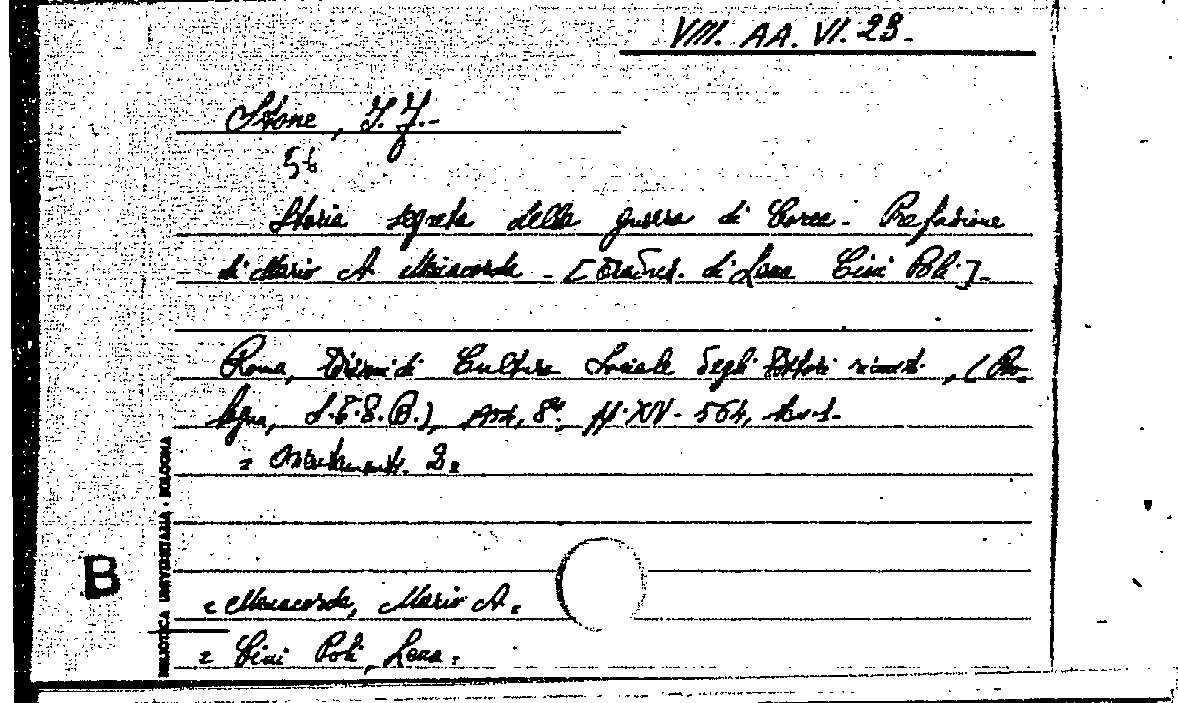 VIII. AA. VI. 23.-
Stone, I. F.-
56
Storia segreta della guerra di Corea - Prefazione
di Mario A. Manacorda - [Traduz. di Lena Cini Poli]-
Roma, Edizioni di Cultura Sociale degli Editori riuniti, (Bo-
logna, S.T.E.B.), 8º, pp. XIV - 564,
= Orientamenti. 2=
B
BIBLIOTECA UNIVERSITARIA - BOLOGNA
= Manacorda, Mario A.=
= Cini Poli, Lena.=